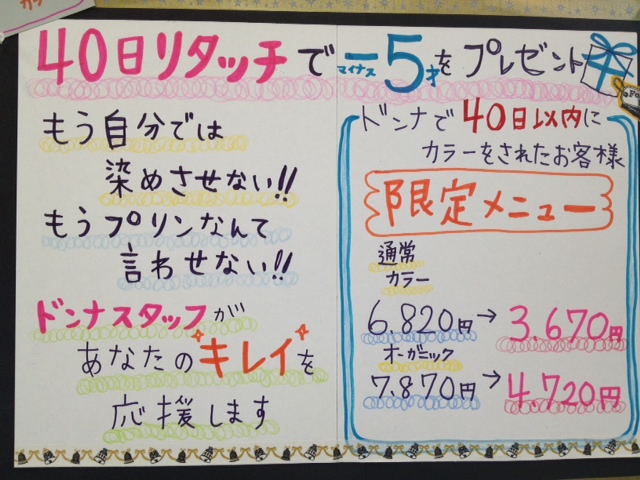 40日リタッチで
もう自分では
染めさせない!!
もうプリンなんて
言わせない!!
ドンナスタッフが
あなたのキレイを
応援します
−5才をプレゼント
マイナス
ドンナで40日以内に
カラーをされたお客様
限定メニュー
通常
カラー
6.820円→3.670円
オーガニック
7.870円→4.720円